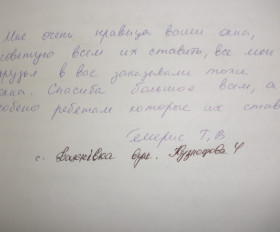 Мне очень нравица ваши окна,
советую всем их ставить, все мои
друзья в вас заказовали тоже
окна. Спасиба большое всем, а
особено ребятам которые их став
Гемерис Т, В
с. Вакнівка вул.